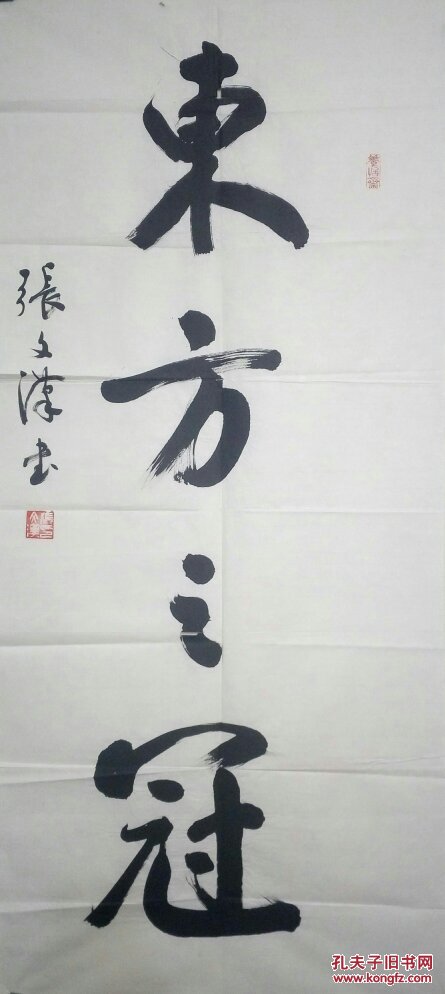 東方之冠
張文漢书
孔夫子旧书网
www.kongfz.com